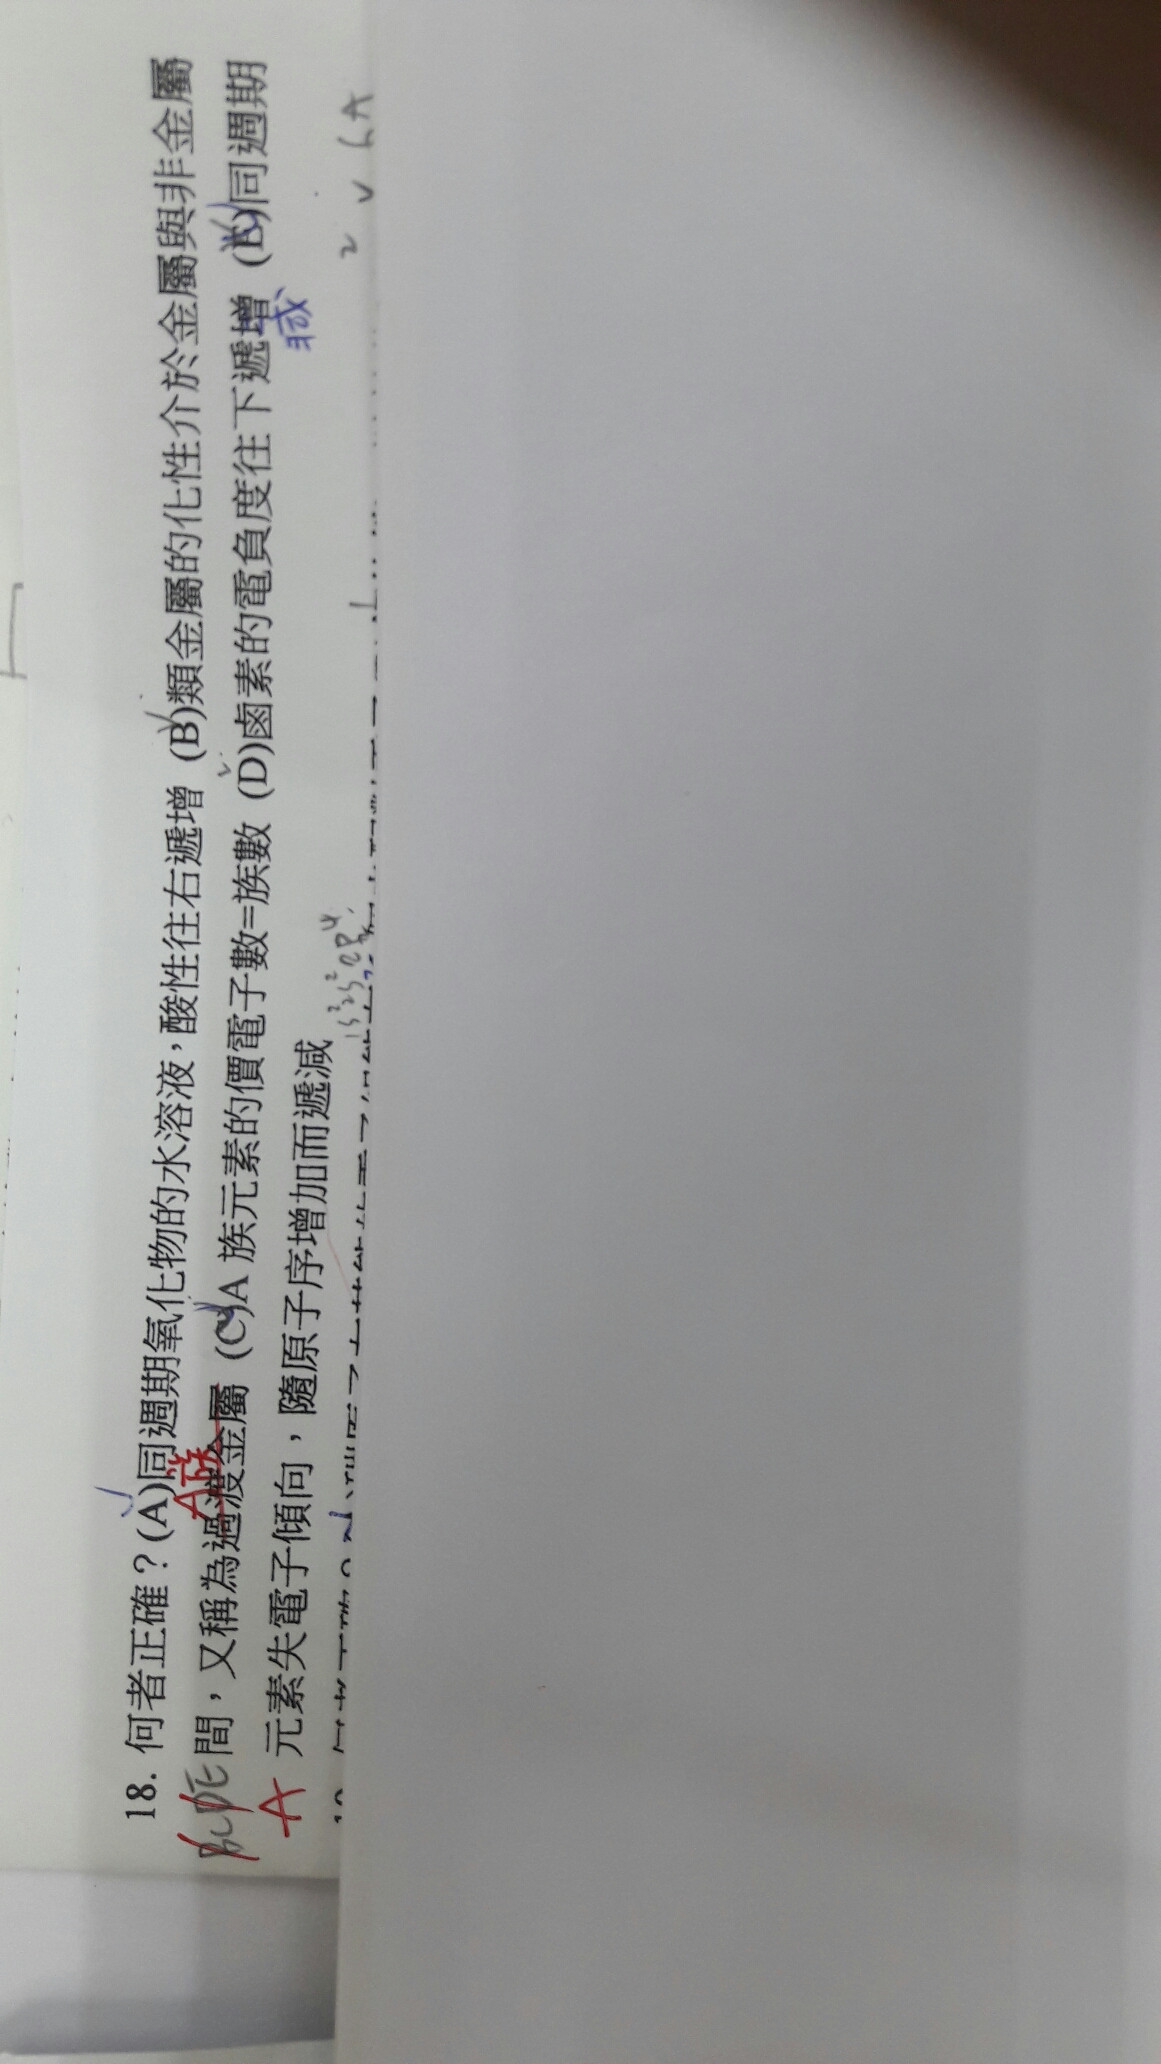 18. 何者正確？(A)同週期氧化物的水溶液，酸性往右遞增 (B)類金屬的化性介於金屬與非金屬
A族
BCDE 間，又稱為過渡金屬 (C)A 族元素的價電子數=族數 (D)鹵素的電負度往下遞增 (E)同週期
減
A 元素失電子傾向，隨原子序增加而遞減
1s²2s²2p⁴